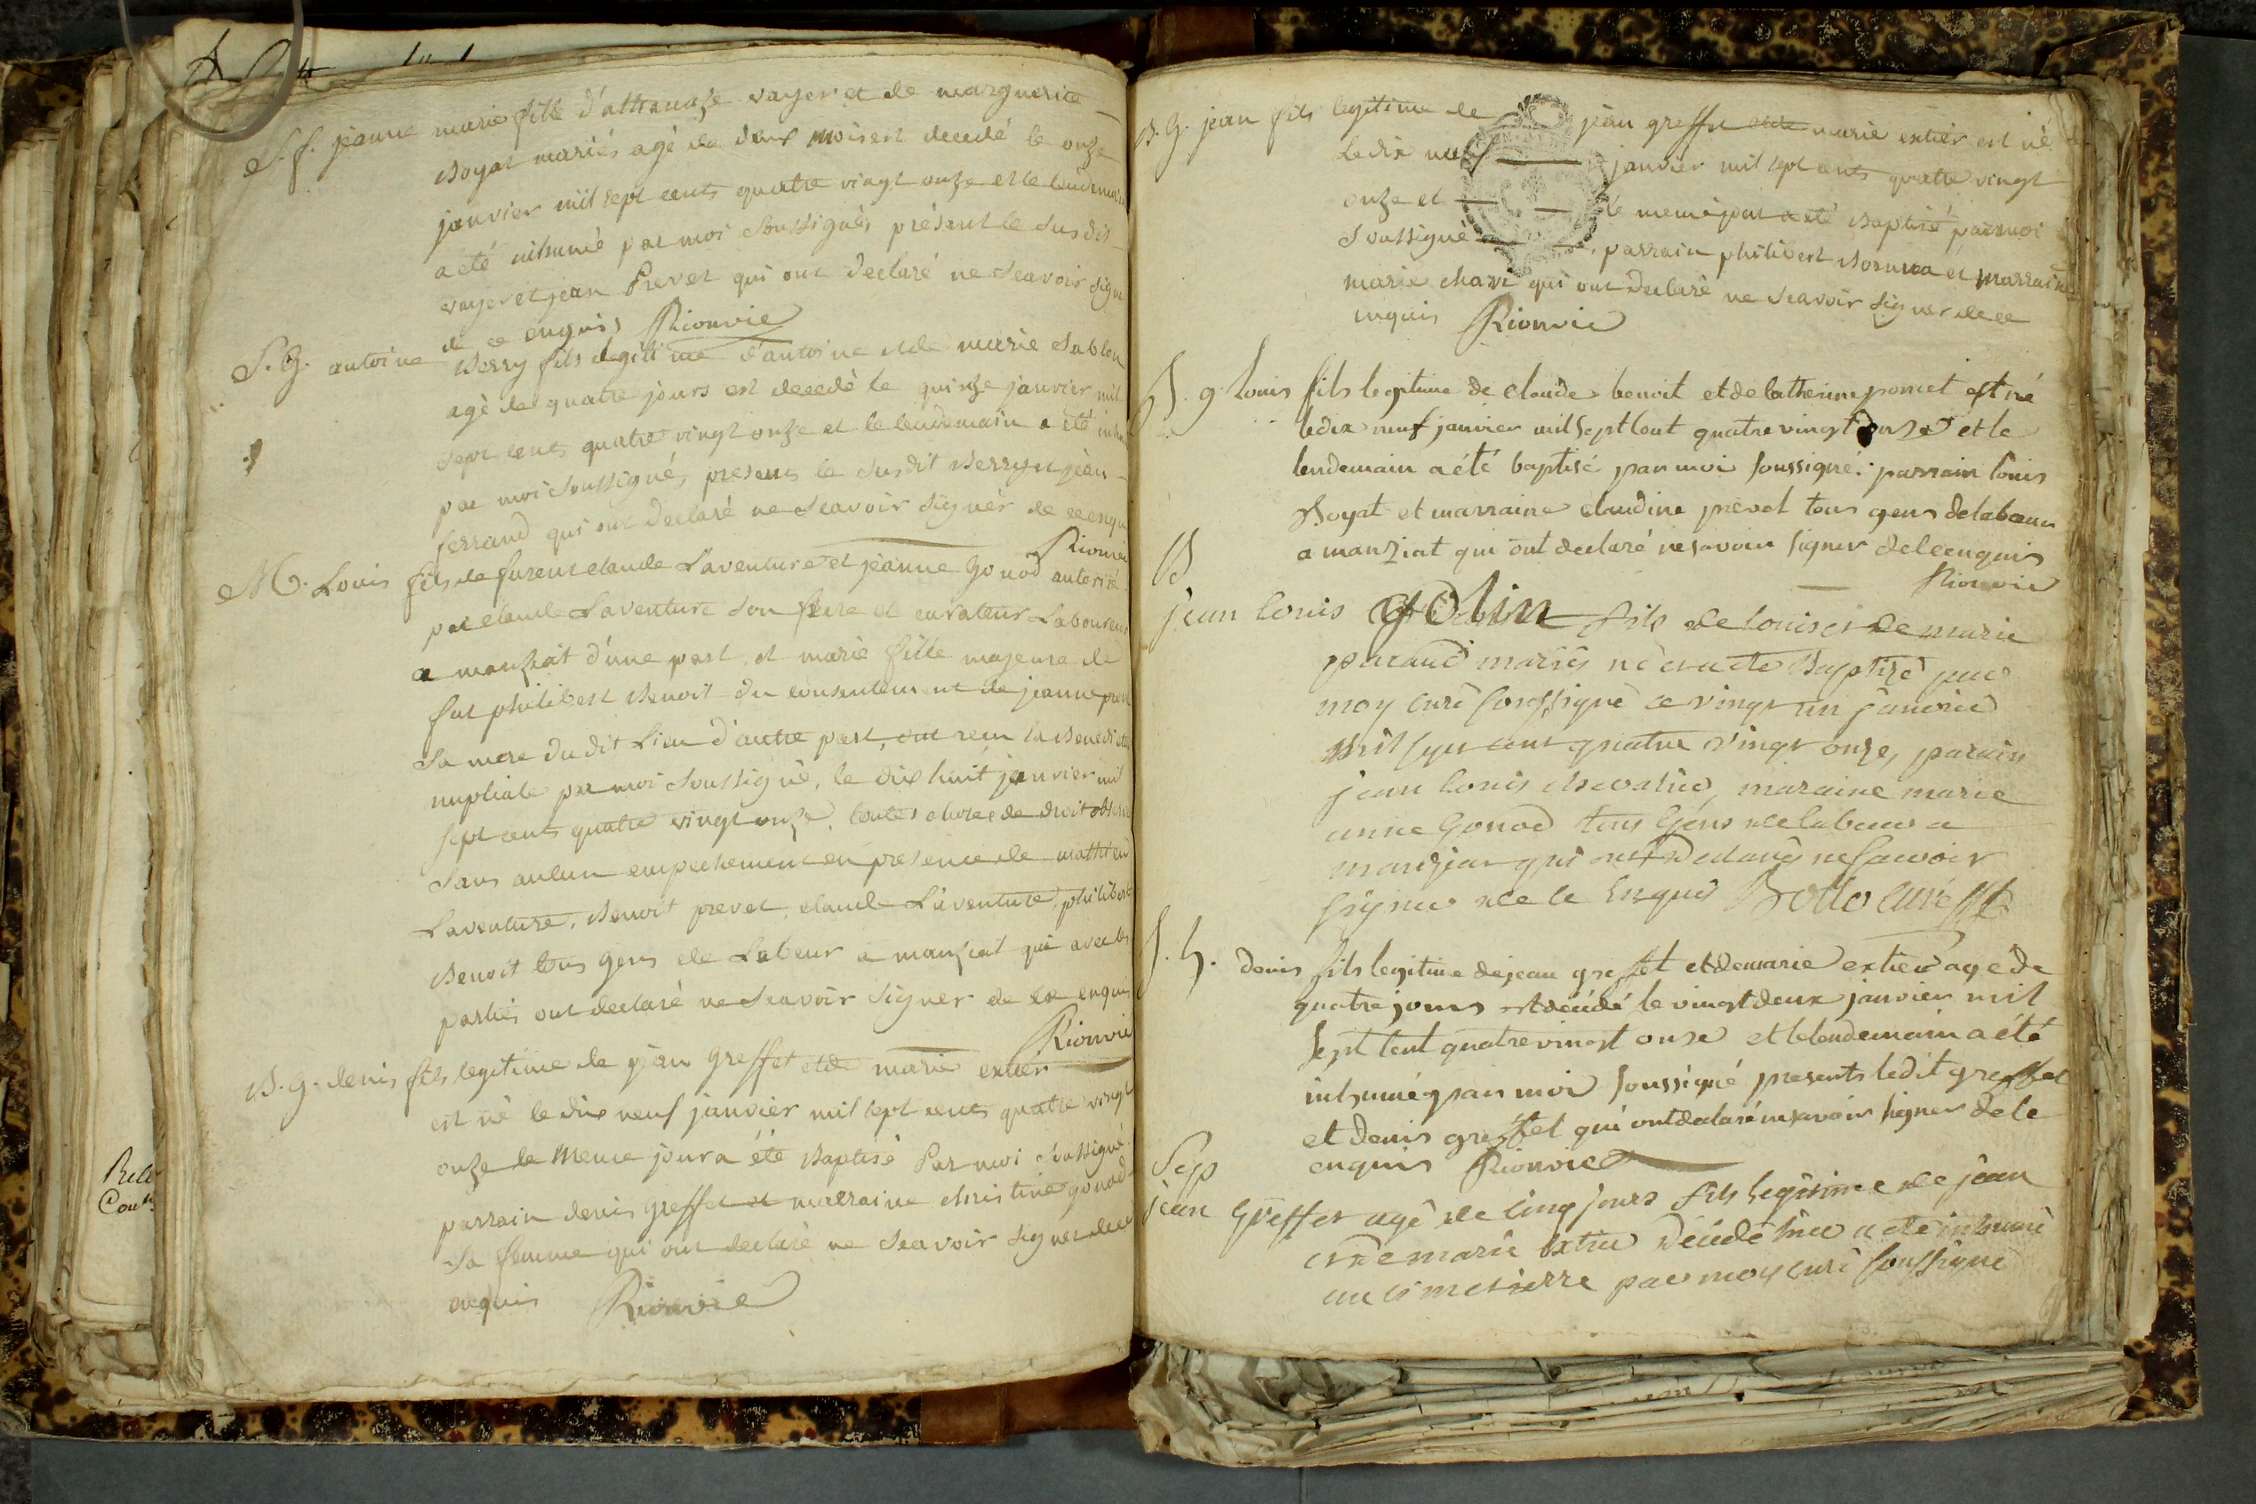 S. f. jeanne marie fille d'athanaze vayer et de marguerite
Boyat mariés agé de deux mois est decedé le onze
janvier mil sept cents quatre vingt onze et le lendemain
a été inhumé par moi soussignés présent le sus dit
vayer et jean Prevet qui ont declaré ne scavoir signer
de ce enquis Rionvie
S. G. antoine Berry fils legitime d'antoine et de marie Sablon
agé de quatre jours est decedé le quinze janvier mil
sept cents quatre vingt onze et le lendemain a été inhu
par moi soussignés presents le susdit Berry et jean
ferrand qui ont declaré ne scavoir signer de ce enquis
Rionvie
M. Louis fils de furent claude Laventure et jeanne Gonod autorisé
par claude Laventure son frere et curateur Laboureur
a manziat d'une part, et marie fille majeure de
fut philibert Benoit du consentement de jeanne
sa mere du dit Lieu d'autre part, ont recu la Benediction
nuptiale par moi soussigné, le dix huit janvier mil
sept cents quatre vingt onze, toutes choses de droit observé
sans aucun empechement en presence de matthieu
Laventure, Benoit prevet, claude Laventure, philibert
Benoit tous gens de Labeur a manziat qui avec les
parties ont declaré ne scavoir signer de ce enquis
Rionvie
B. g. denis fils legitime de jean Greffet et de marie extier
est né le dix neuf janvier mil sept cents quatre vingt
onze le meme jour a été Baptisé Par moi soussigné
parrain denis Greffet et marraine christine gonod
sa femme qui ont declaré ne scavoir signer de ce
enquis Rionvie
B. G. jean fils legitime de jean greffet et de marie extier est né
le dix neuf janvier mil sept cents quatre vingt
onze et le meme jour a été Baptisé par moi
soussigné parrain philibert et marraine
marie chave qui ont declaré ne scavoir signer de ce
enquis Rionvie
B. g. louis fils legitime de claude benoit et de catherine poncet est né
le dix neuf janvier mil sept cent quatre vingt onze et le
lendemain a été baptisé par moi soussigné. parrain louis
Boyat et marraine claudine prevet tous gens de labeur
a manziat qui ont declaré ne savoir signer de ce enquis
Rionvie
B
jean louis golin fils de louis et de marie
paraud mariés né et a été Baptisé par
moy curé soussigné ce vingt un janvier
mil sept cent quatre vingt onze, parain
jean louis chevalier, maraine marie
anne Gonod tous Gens de labeur a
manziat qui ont declarés ne scavoir
signer de ce Enquis Bollo curé
S. h. denis fils legitime de jean greffet et de marie extier age de
quatre jours est décédé le vingt deux janvier mil
sept cent quatre vingt onze et le lendemain a été
inhumé par moi soussigné presents le dit greffet
et denis greffet qui ont declaré ne savoir signer de ce
enquis Rionvie
Sep
jean Greffet agé de cinq jours fils legitime de jean
et de marie extier décédé hier a été inhumé
au cimetierre par moy curé soussigné